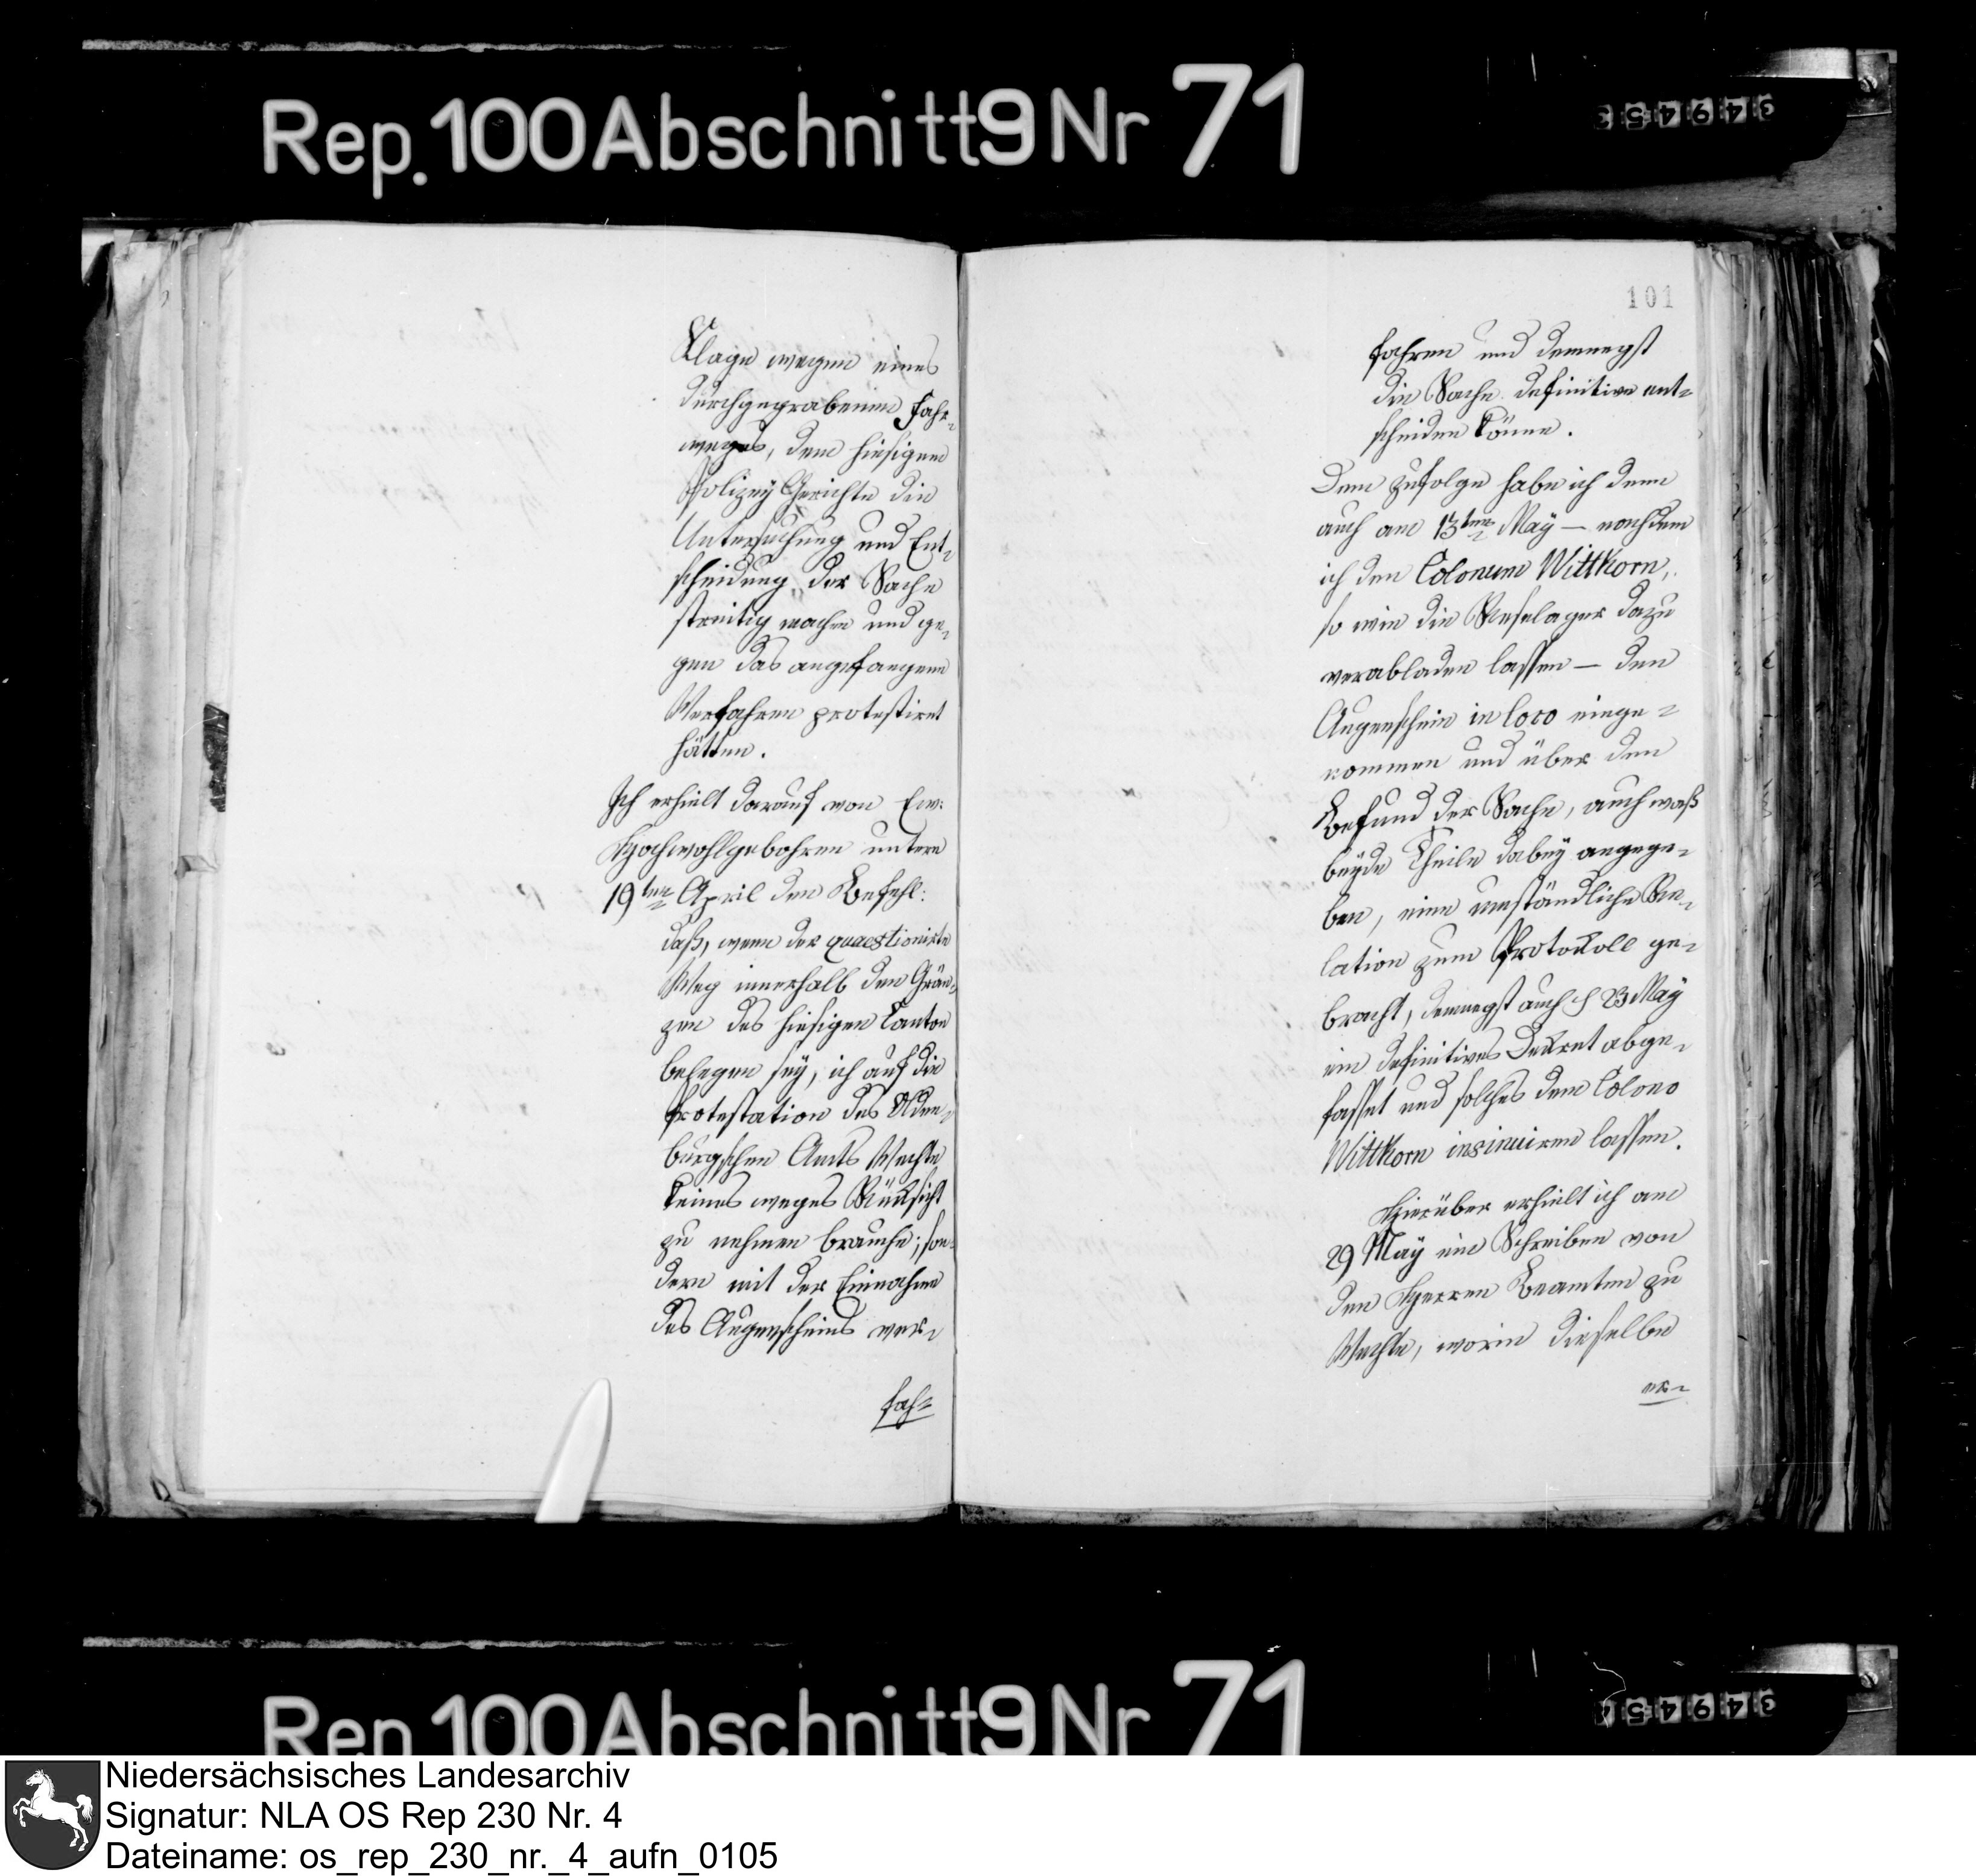 Rep. 100 Abschnitt 9 Nr 71
34945
Klage wegen eines
durchgegrabenen Fahr-
weges, dem hiesigen
Polizey Gerichte die
Untersuchung und Ent-
scheidung der Sache
streitig machen und ge-
gen das angefangene
Verfahren protestiret
hätten.
Ich erhielt darauf von Ew:
Hochwohlgebohren unterm
19ten April den Befehl:
daß, wenn der quaestionirte
Weg innerhalb den Grän-
zen des hiesigen Canton
belegen sey, ich auf die
Protestation des Olden-
burgschen Amts Vechte
keines weges Rücksicht
zu nehmen brauche; son-
dern mit der Einnahme
des Augenscheins ver-
fah-
101
fahren und demnegst
die Sache definitive ent-
scheiden könne.
Dem zufolge habe ich denn
auch am 13ten May — nachdem
ich den Colonum Wittkorn,
so wie die Neselager dazu
verabladen lassen — den
Augenschein in loco einge-
nommen und über den
Befund der Sache, auch waß
beyde Theile dabey angege-
ben, eine umständliche Re-
lation zum Protokoll ge-
bracht, demnegst auch 23 May
ein definitives Dekret abge-
fasset und solches dem Colono
Wittkorn insinuiren lassen.
Hierüber erhielt ich am
29 May ein Schreiben von
den Herren Beamten zu
Vechte, worin dieselbe
er-
Rep. 100 Abschnitt 9 Nr 71
34945
Niedersächsisches Landesarchiv
Signatur: NLA OS Rep 230 Nr. 4
Dateiname: os_rep_230_nr._4_aufn_0105